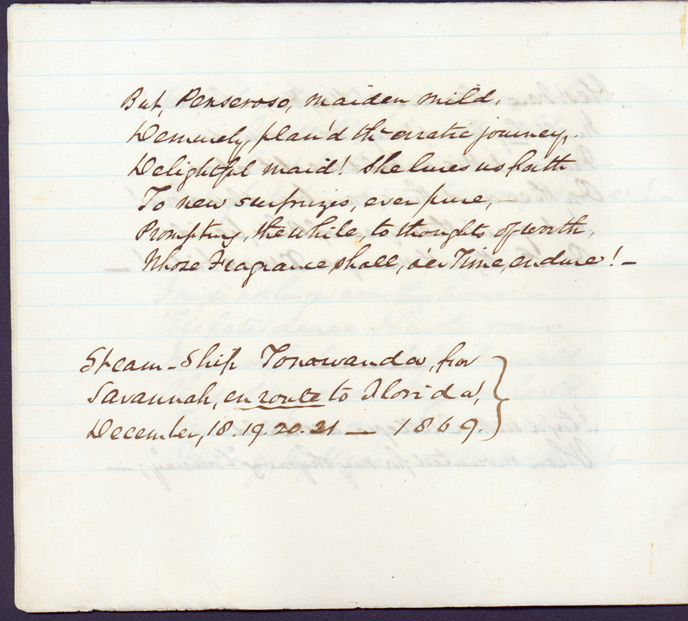 But, Penseroso, maiden mild,
Demurely, plan'd the erratic journey.
Delightful maid! She lures us forth
To new surprizes, ever pure, —
Prompting, the while, to thoughts of worth,
Whose Fragrance shall, o'er Time, endure! —
Steam-Ship Tonawanda, for
Savannah, en route to Florida,
December, 18. 19. 20. 21 — 1869.